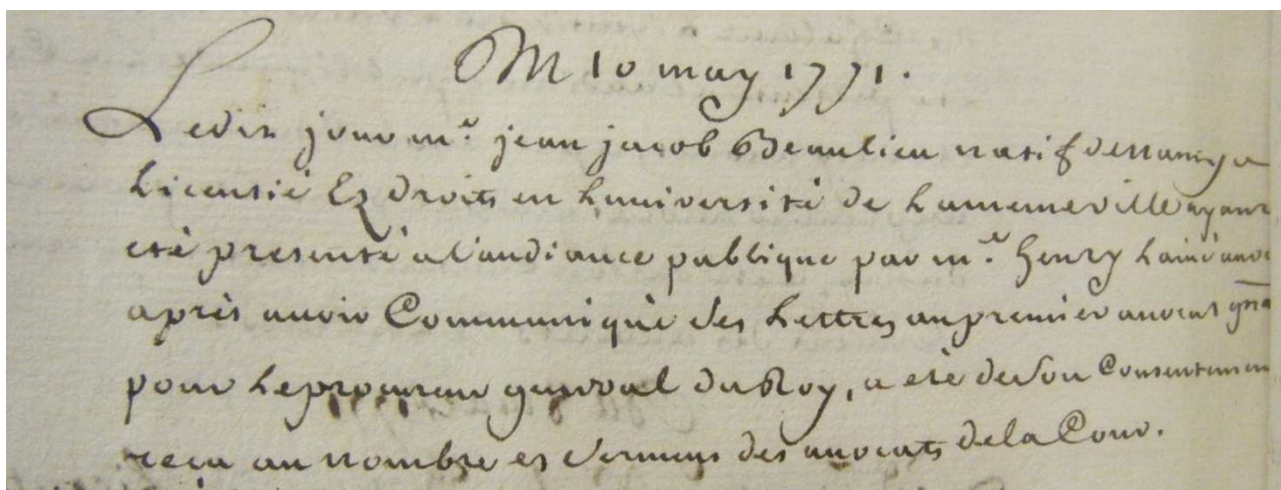 M 10 may 1771.
Ledit jour me. jean jacob Beaulieu natif de nancy et
Licentié Ez droits en L'université de La meme ville ayant
eté presenté a l'audiance publique par me. henry L'ainé avoc
après avoir Communiqué ses Lettres au premier avocat gna
pour Le procureur general du Roy, a eté de son Consentemen
reçu au nombre et serment des avocats de la Cour.